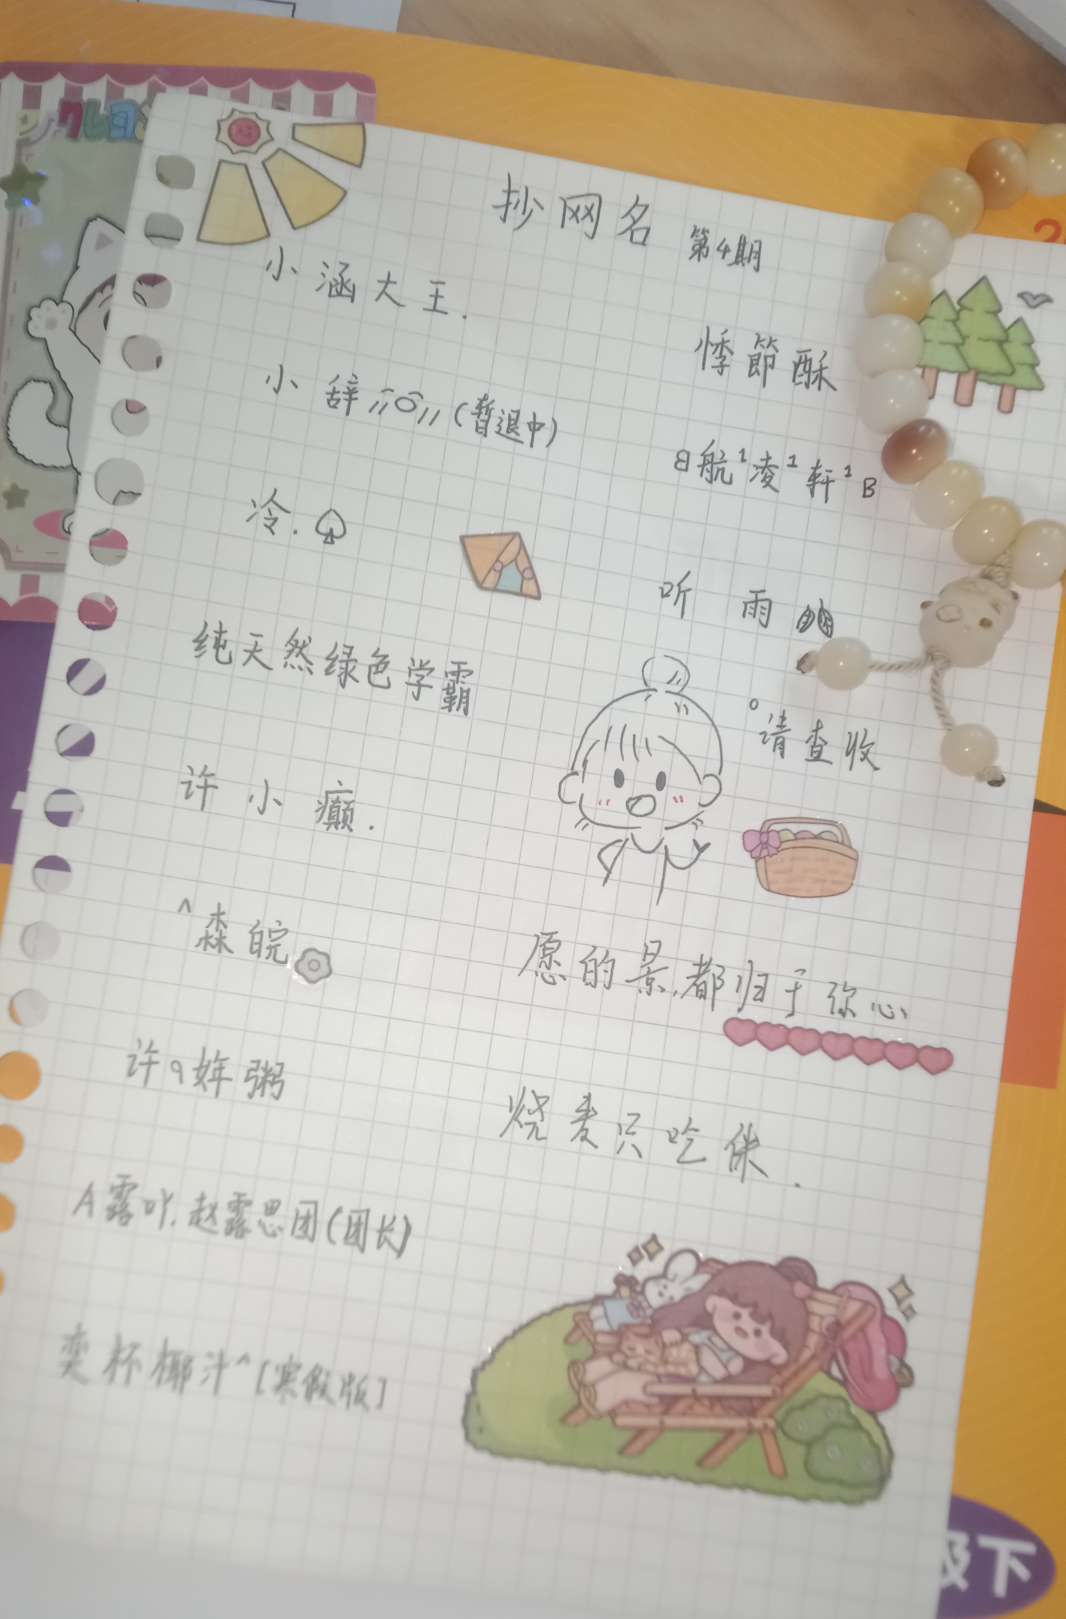 クレヨン
抄网名 第4期
小涵大王.
悸節酥
小辞 (暂退中)
8航¹凌¹轩¹B
冷.♤
听雨
纯天然绿色学霸
°请查收
许小癫.
^森皖
愿的景,都归于弥心
许9姩粥
烧麦只吃侎.
A露吖.赵露思团(团长)
奕杯椰汁^[寒假版]
级下